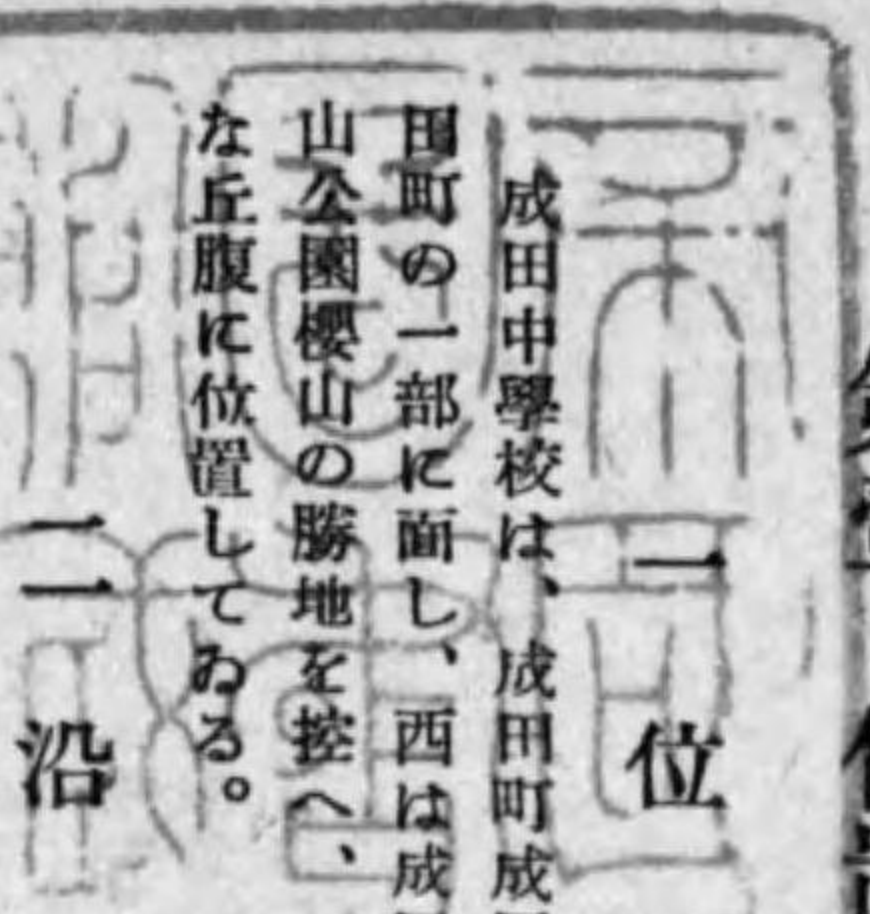 一 位
成田中學校は、成田町成
田町の一部に面し、西は成
山公園櫻山の勝地を控へ、
な丘腹に位置してゐる。
二 沿